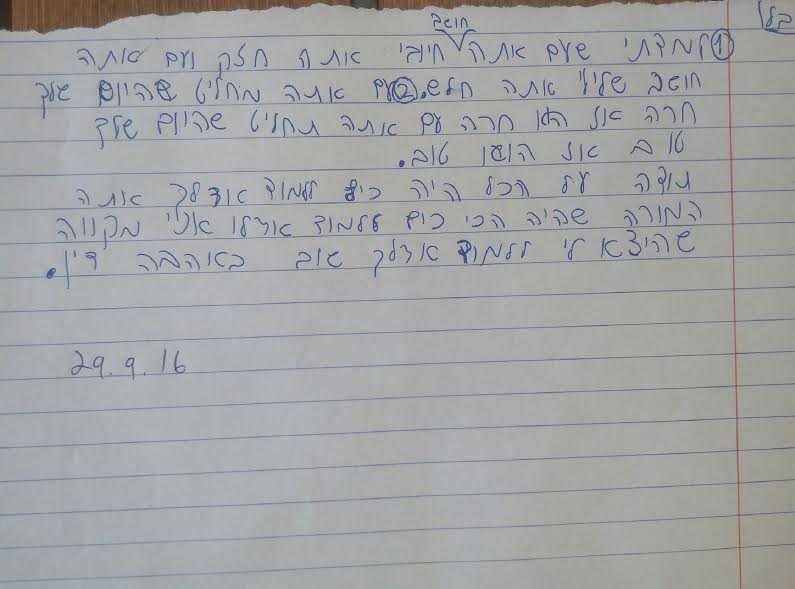 בלו
חושב
①למדתי שעם אתה חיובי אתה חזק ועם אתה
חושב שלילי אתה חלש. ②עם אתה מחליט שהיום שלך
חרה אז הוא חרה עם אתה תחליט שהיום שלך
טוב אז הוא טוב.
תודה על הכל היה כיף ללמוד אצלך אתה
המורה שהיה הכי כיף ללמוד אצלו אני מקווה
שהיצא לי ללמוד אצלך שוב באהבה דין.
29.9.16